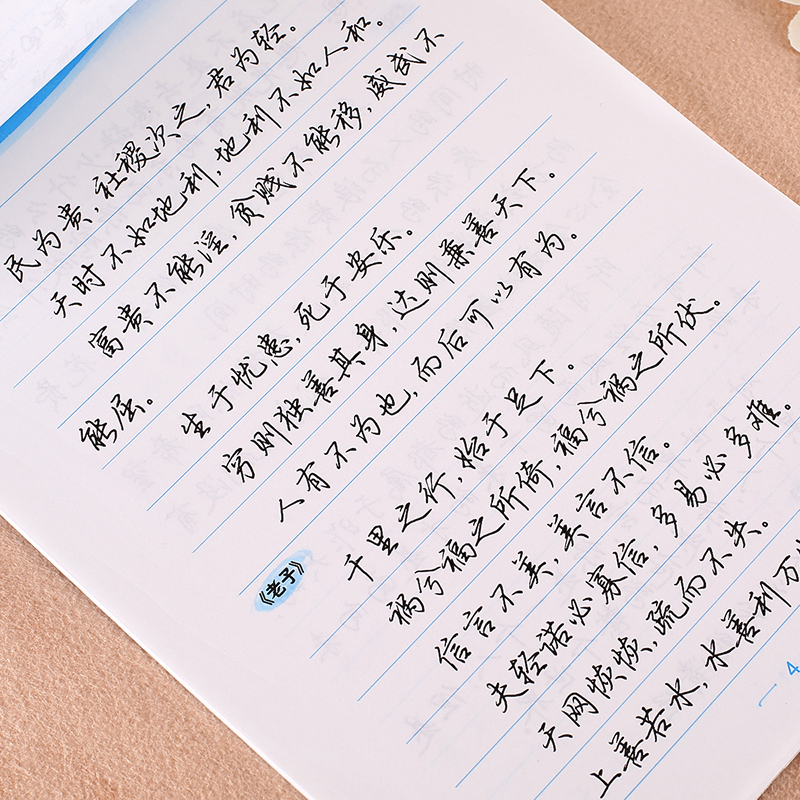 民为贵，社稷次之，君为轻。
天时不如地利，地利不如人和。
富贵不能淫，贫贱不能移，威武不
能屈。
生于忧患，死于安乐。
穷则独善其身，达则兼善天下。
人有不为也，而后可以有为。
《老子》
千里之行，始于足下。
祸兮福之所倚，福兮祸之所伏。
信言不美，美言不信。
夫轻诺必寡信，多易必多难。
天网恢恢，疏而不失。
上善若水，水善利万
4